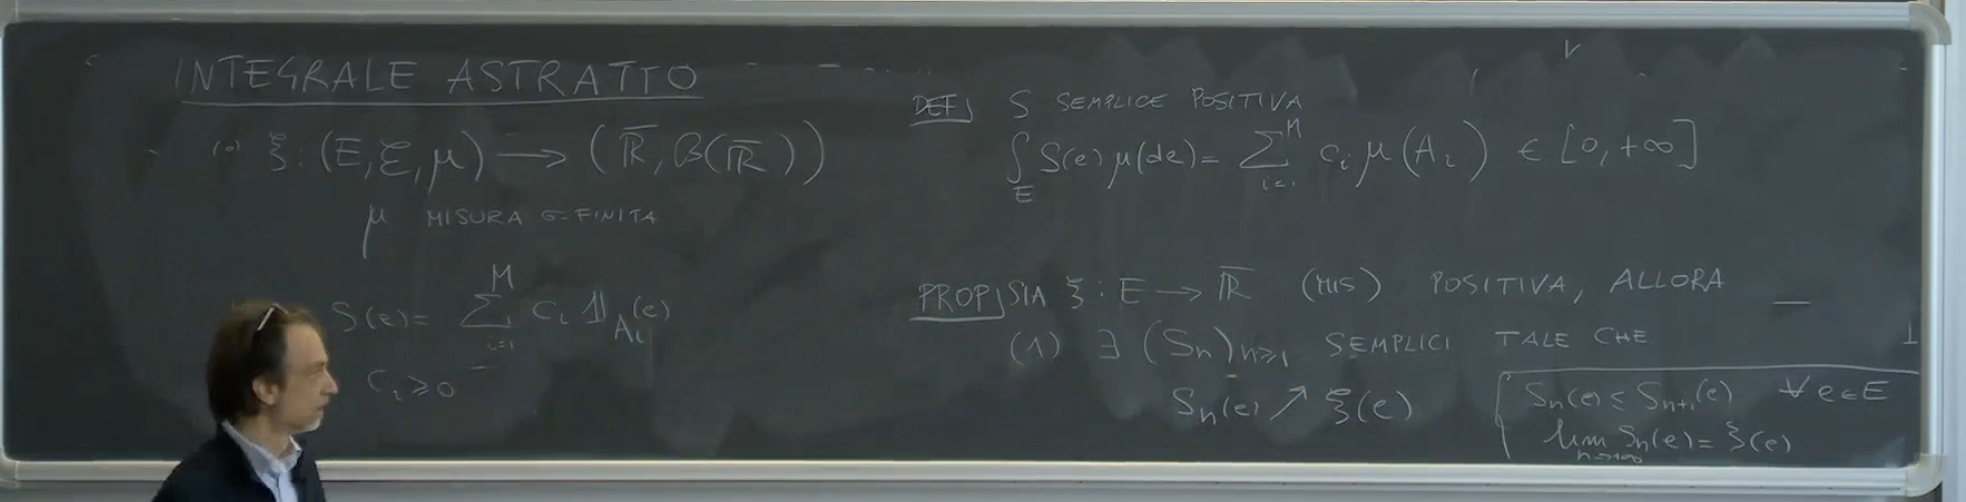 INTEGRALE ASTRATTO
(0) ξ : (E, ℰ, μ) → (ℝ̅, ℬ(ℝ̅))
μ MISURA σ-FINITA
S(e) = ∑_{i=1}^{M} c_i 𝟙_{A_i}(e)
c_i ⩾ 0
DEF) S SEMPLICE POSITIVA
∫_E S(e) μ(de) = ∑_{i=1}^{M} c_i μ(A_i) ∈ [0, +∞]
PROP) SIA ξ : E → ℝ̅ (MIS) POSITIVA, ALLORA
(1) ∃ (S_n)_{n⩾1} SEMPLICI TALE CHE
S_n(e) ↗ ξ(e)
S_n(e) ≤ S_{n+1}(e) ∀ e ∈ E
lim_{n→+∞} S_n(e) = ξ(e)